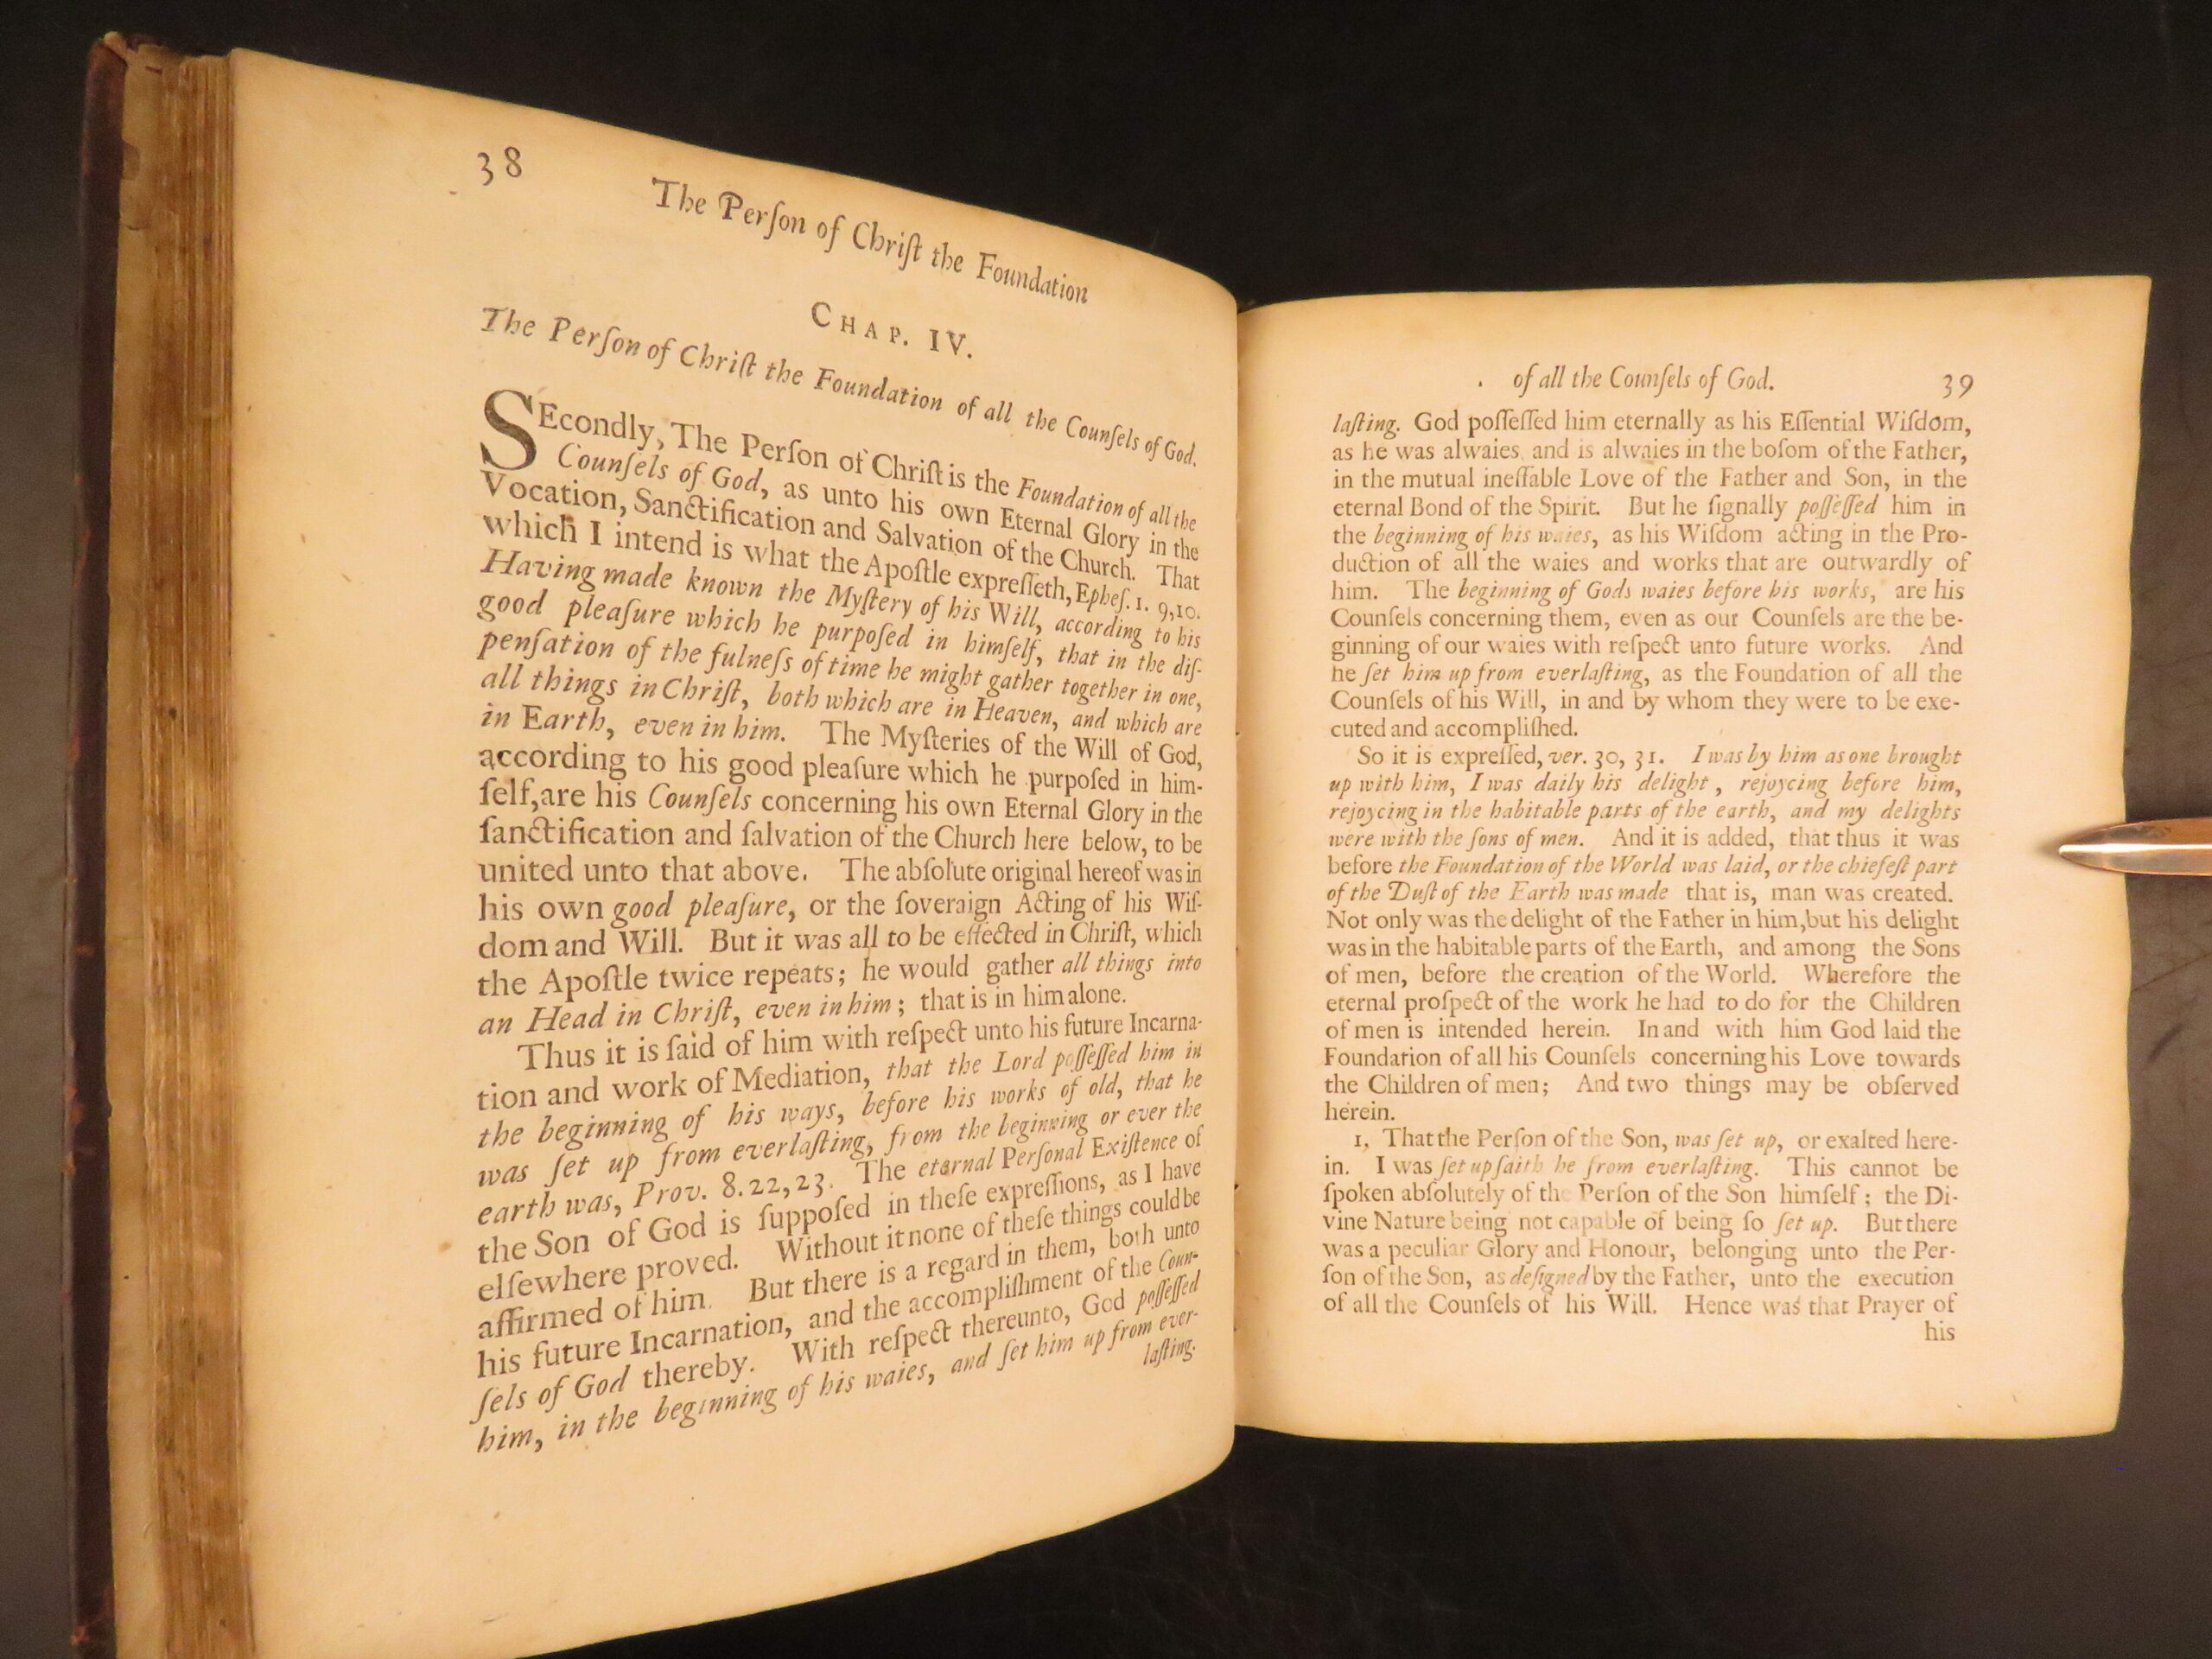 38
The Perſon of Chriſt the Foundation
CHAP. IV.
The Perſon of Chriſt the Foundation of all the Counſels of God.
SEcondly, The Perſon of Chriſt is the Foundation of all the
Counſels of God, as unto his own Eternal Glory in the
Vocation, Sanctification and Salvation of the Church. That
which I intend is what the Apoſtle expreſſeth, Epheſ. 1. 9,10.
Having made known the Myſtery of his Will, according to his
good pleaſure which he purpoſed in himſelf, that in the diſ-
penſation of the fulneſs of time he might gather together in one,
all things in Chriſt, both which are in Heaven, and which are
in Earth, even in him. The Myſteries of the Will of God,
according to his good pleaſure which he purpoſed in him-
ſelf, are his Counſels concerning his own Eternal Glory in the
ſanctification and ſalvation of the Church here below, to be
united unto that above. The abſolute original hereof was in
his own good pleaſure, or the ſoveraign Acting of his Wiſ-
dom and Will. But it was all to be effected in Chriſt, which
the Apoſtle twice repeats; he would gather all things into
an Head in Chriſt, even in him; that is in him alone.
Thus it is ſaid of him with reſpect unto his future Incarna-
tion and work of Mediation, that the Lord poſſeſſed him in
the beginning of his ways, before his works of old, that he
was ſet up from everlaſting, from the beginning or ever the
earth was, Prov. 8.22,23. The eternal Perſonal Exiſtence of
the Son of God is ſuppoſed in theſe expreſſions, as I have
elſewhere proved. Without it none of theſe things could be
affirmed of him. But there is a regard in them, both unto
his future Incarnation, and the accompliſhment of the Coun-
ſels of God thereby. With reſpect thereunto, God poſſeſſed
him, in the beginning of his waies, and ſet him up from ever-
laſting.
of all the Counſels of God. 39
laſting. God poſſeſſed him eternally as his Eſſential Wiſdom,
as he was alwaies, and is alwaies in the boſom of the Father,
in the mutual ineffable Love of the Father and Son, in the
eternal Bond of the Spirit. But he ſignally poſſeſſed him in
the beginning of his waies, as his Wiſdom acting in the Pro-
duction of all the waies and works that are outwardly of
him. The beginning of Gods waies before his works, are his
Counſels concerning them, even as our Counſels are the be-
ginning of our waies with reſpect unto future works. And
he ſet him up from everlaſting, as the Foundation of all the
Counſels of his Will, in and by whom they were to be exe-
cuted and accompliſhed.
So it is expreſſed, ver. 30, 31. I was by him as one brought
up with him, I was daily his delight, rejoycing before him,
rejoycing in the habitable parts of the earth, and my delights
were with the ſons of men. And it is added, that thus it was
before the Foundation of the World was laid, or the chiefeſt part
of the Duſt of the Earth was made that is, man was created.
Not only was the delight of the Father in him, but his delight
was in the habitable parts of the Earth, and among the Sons
of men, before the creation of the World. Wherefore the
eternal proſpect of the work he had to do for the Children
of men is intended herein. In and with him God laid the
Foundation of all his Counſels concerning his Love towards
the Children of men; And two things may be obſerved
herein.
1. That the Perſon of the Son, was ſet up, or exalted here-
in. I was ſet up ſaith he from everlaſting. This cannot be
ſpoken abſolutely of the Perſon of the Son himſelf; the Di-
vine Nature being not capable of being ſo ſet up. But there
was a peculiar Glory and Honour, belonging unto the Per-
ſon of the Son, as deſigned by the Father, unto the execution
of all the Counſels of his Will. Hence was that Prayer of
his